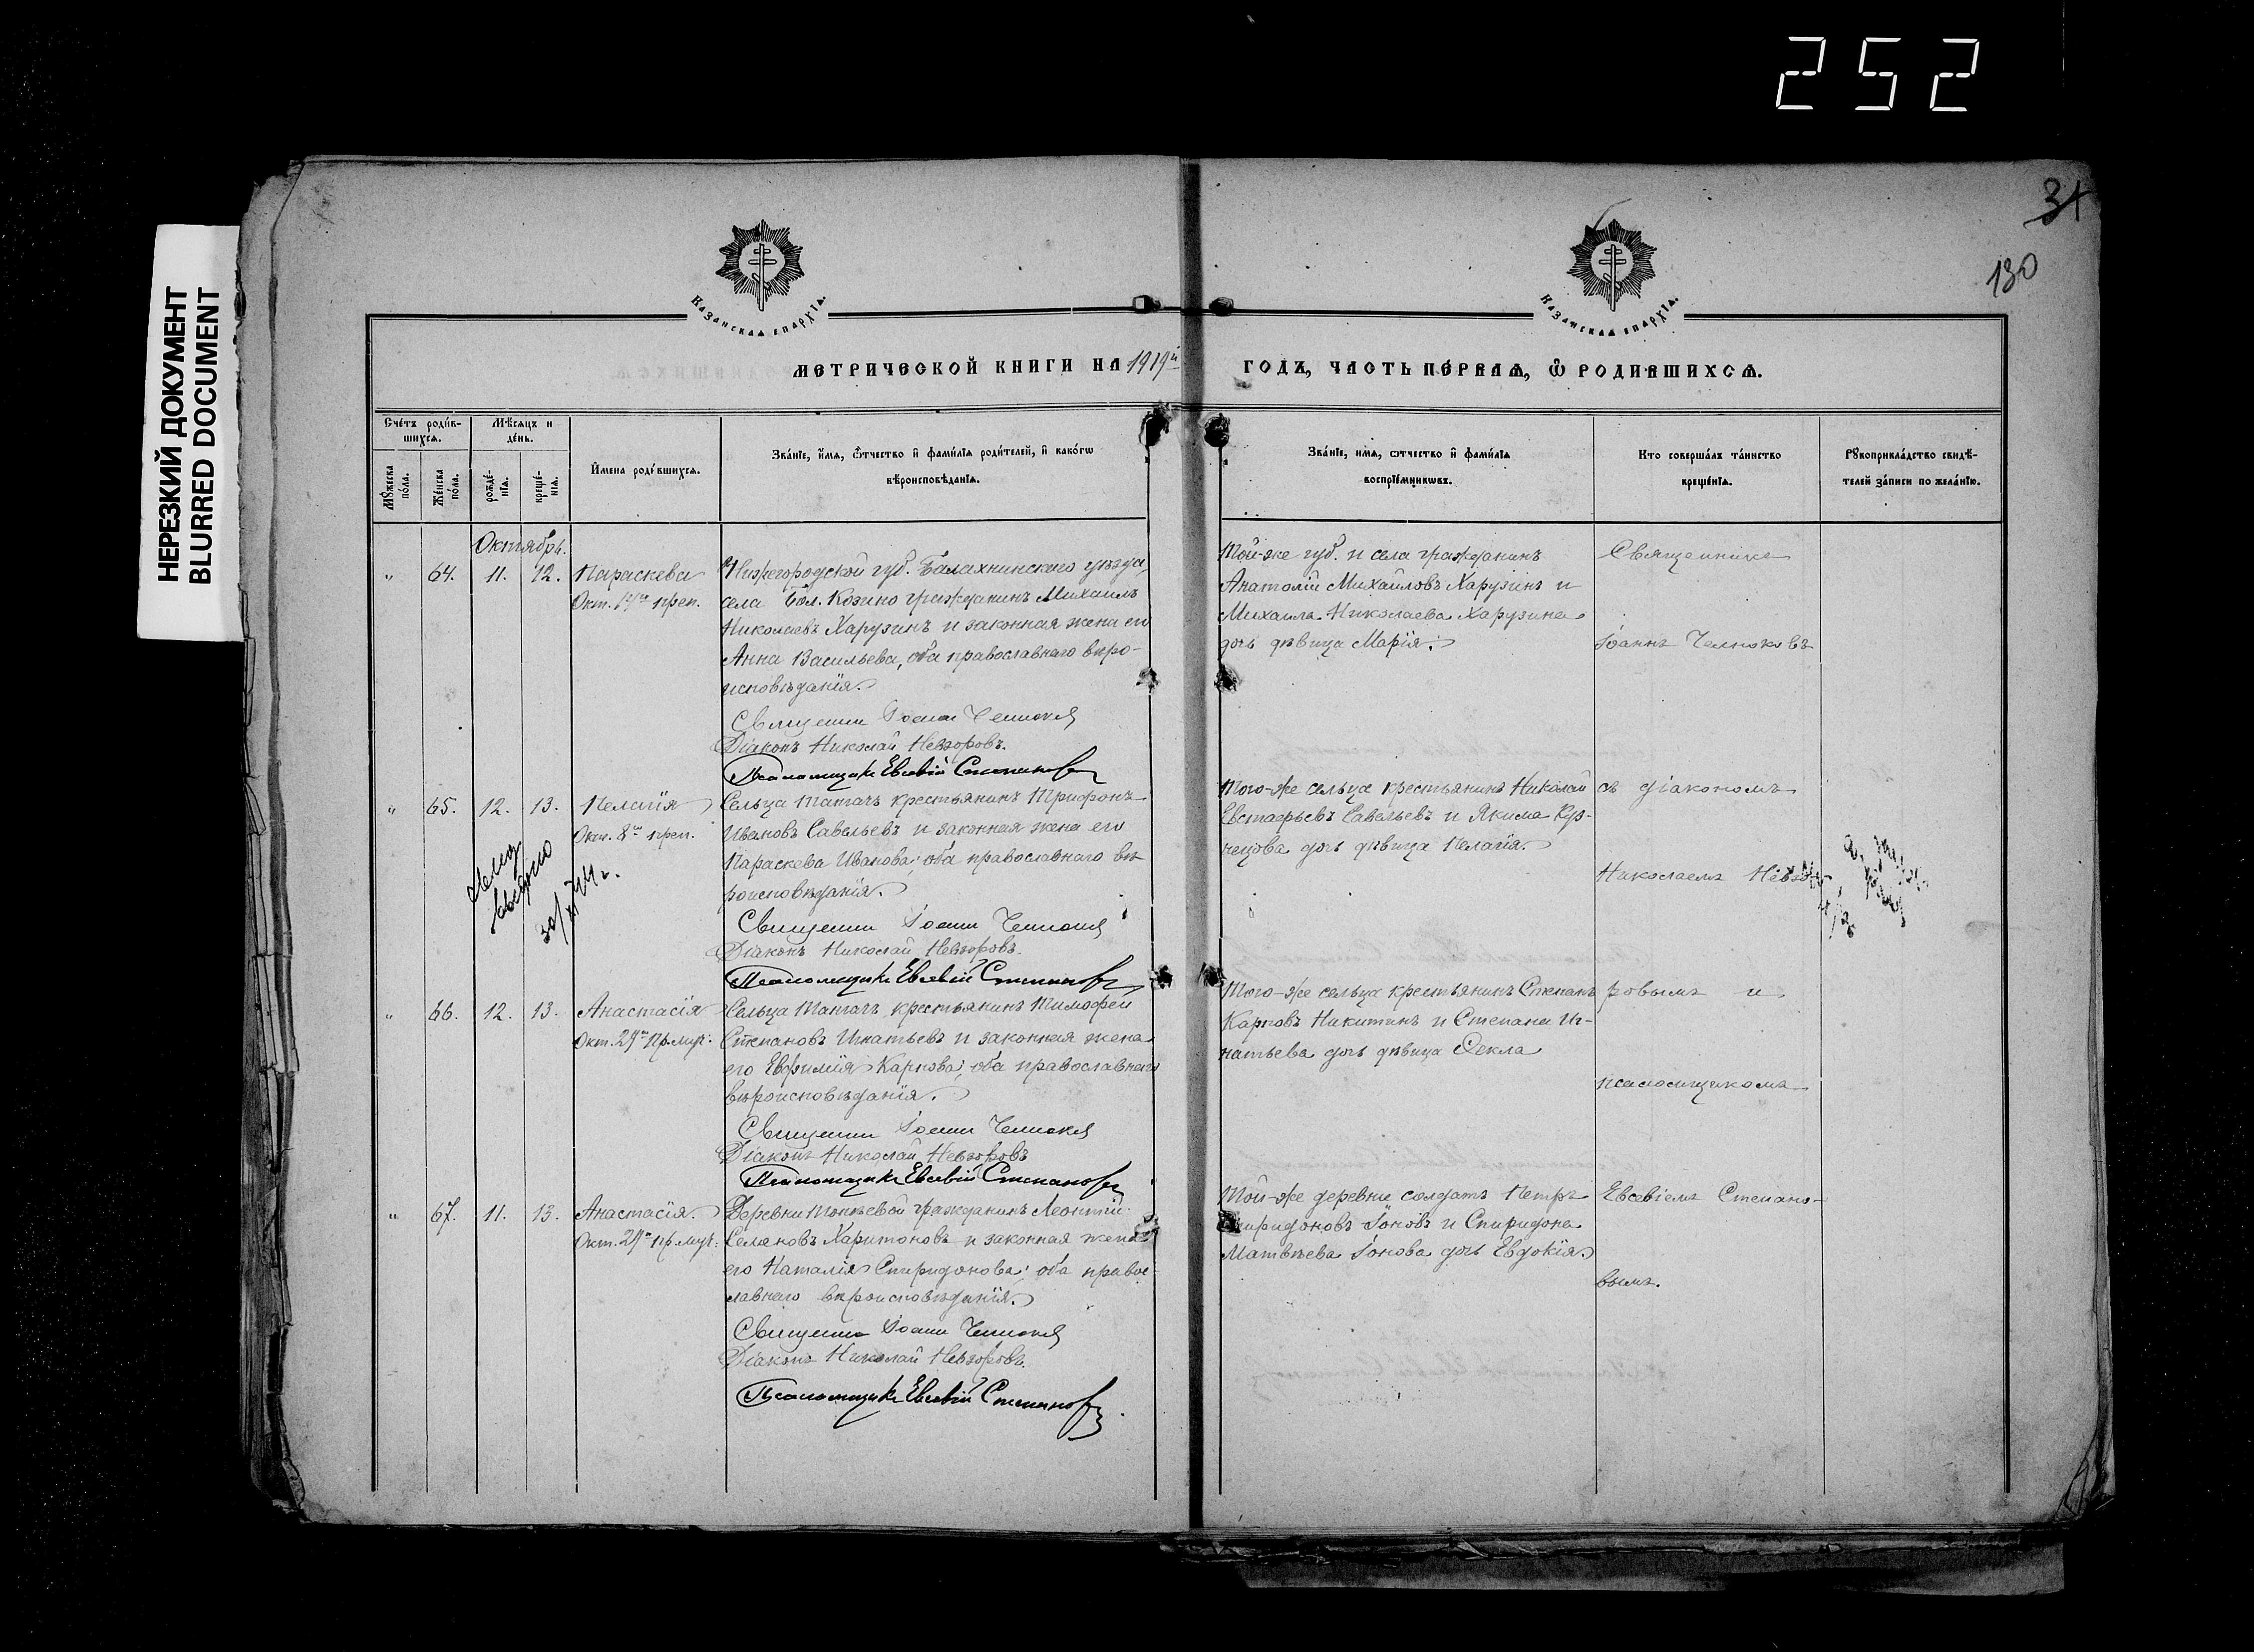 252
НЕРЕЗКИЙ ДОКУМЕНТ
BLURRED DOCUMENT
31
130
Казанская епархїѧ.
Казанская епархїѧ.
МЕТРИЧЕСКОЙ КНИГИ НА 1919й
ГОДЪ, ЧАСТЬ ПЕРВАЯ, Ѿ РОДИВШИХСЯ.
Счетъ родив-
шихся.
Мѣсяцъ и
день.
Мужеска
пола.
Женска
пола.
рожде-
нїя.
креще-
нїя.
Имена родившихся.
Званїе, имя, ѿтчество и фамилїя родителей, и какогѡ
вѣроисповѣданїя.
Званїе, имя, ѿтчество и фамилїя
воспрїемникѡвъ.
Кто совершалъ таинство
крещенїя.
Рукоприкладство свидѣ-
телей записи по желанїю.
Октябрь.
" 64. 11. 12. Параскева
Окт. преп.
Нижегородской губ. Балахнинскаго уѣзда,
села Бол. Козино гражданинъ Михаилъ
Николаевъ Харузинъ и законная жена его
Анна Васильева, оба православнаго вѣро-
исповѣданія.
Священникъ Іоаннъ Челноковъ
Діаконъ Николай Невзоровъ.
Псаломщикъ Евсевій Степановъ
Той-же губ. и села гражданинъ
Анатолій Михайловъ Харузинъ и
Михаила Николаева Харузина
дочь дѣвица Марія.
Священникъ
Іоаннъ Челноковъ
" 65. 12. 13. Пелагія
Окт. 8го преп.
Сельца Таташ крестьянинъ Трифонъ
Ивановъ Савельевъ и законная жена его
Параскева Иванова; оба православнаго вѣ-
роисповѣданія.
Священникъ Іоаннъ Челноковъ
Діаконъ Николай Невзоровъ.
Псаломщикъ Евсевій Степановъ
Того-же сельца крестьянинъ Николай
Евстафьевъ Савельевъ и Якима Куз-
нецова дочь дѣвица Пелагія.
съ діакономъ
Николаемъ Невзо-
" 66. 12. 13. Анастасія
Окт. 29го пр. муч.
Сельца Таташ крестьянинъ Тимофей
Степановъ Игнатьевъ и законная жена
его Евфимія Карпова; оба православнаго
вѣроисповѣданія.
Священникъ Іоаннъ Челноковъ
Діаконъ Николай Невзоровъ
Псаломщикъ Евсевій Степановъ
Того-же сельца крестьянинъ Степанъ
Карповъ Никитинъ и Степана Иг-
натьева дочь дѣвица Ѳекла
ровымъ и
псаломщикомъ
" 67. 11. 13. Анастасія.
Окт. 29го пр. муч.
Деревни гражданинъ Леонтій
Харитоновъ и законная жена
его Наталія Спиридонова; оба право-
славнаго вѣроисповѣданія.
Священникъ Іоаннъ Челноковъ
Діаконъ Николай Невзоровъ.
Псаломщикъ Евсевій Степановъ
Той-же деревни солдатъ Петръ
Спиридоновъ Іоновъ и Спиридона
Матвѣева Іонова дочь Евдокія.
Евсевіемъ Степано-
вымъ.